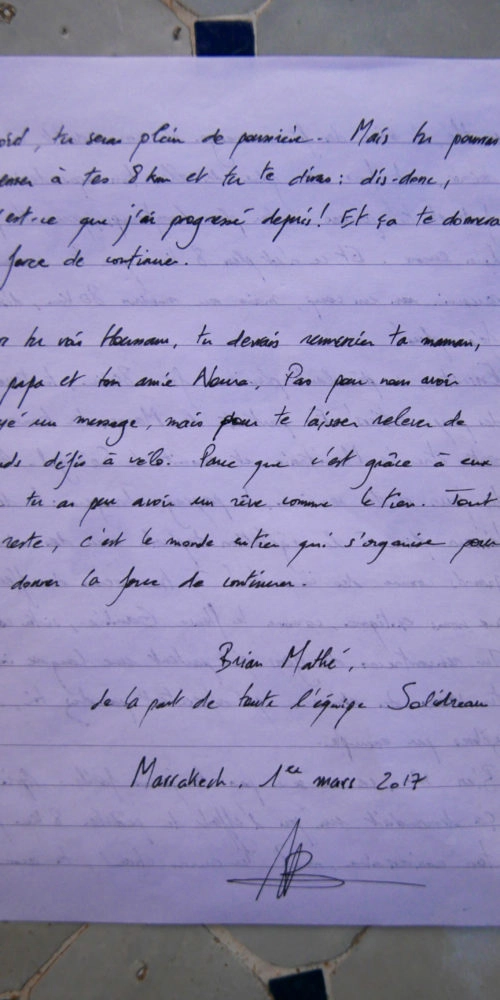 , tu seras plein de poussière. Mais tu pourras
penser à tes 8 km et tu te diras : dis-donc,
est-ce que j'ai progressé depuis ! Et ça te donnera
force de continuer.
tu vois Houssam, tu devrais remercier ta maman,
papa et ton amie Noura. Pas pour nous avoir
un message, mais pour te laisser relever de
ds défis à vélo. Parce que c'est grâce à eux
tu as pu avoir un rêve comme le tien. Tout
reste, c'est le monde entier qui s'organise pour
donner la force de continuer.
Brian Mathé,
de la part de toute l'équipe Solidream
Marrakech, 1er mars 2017